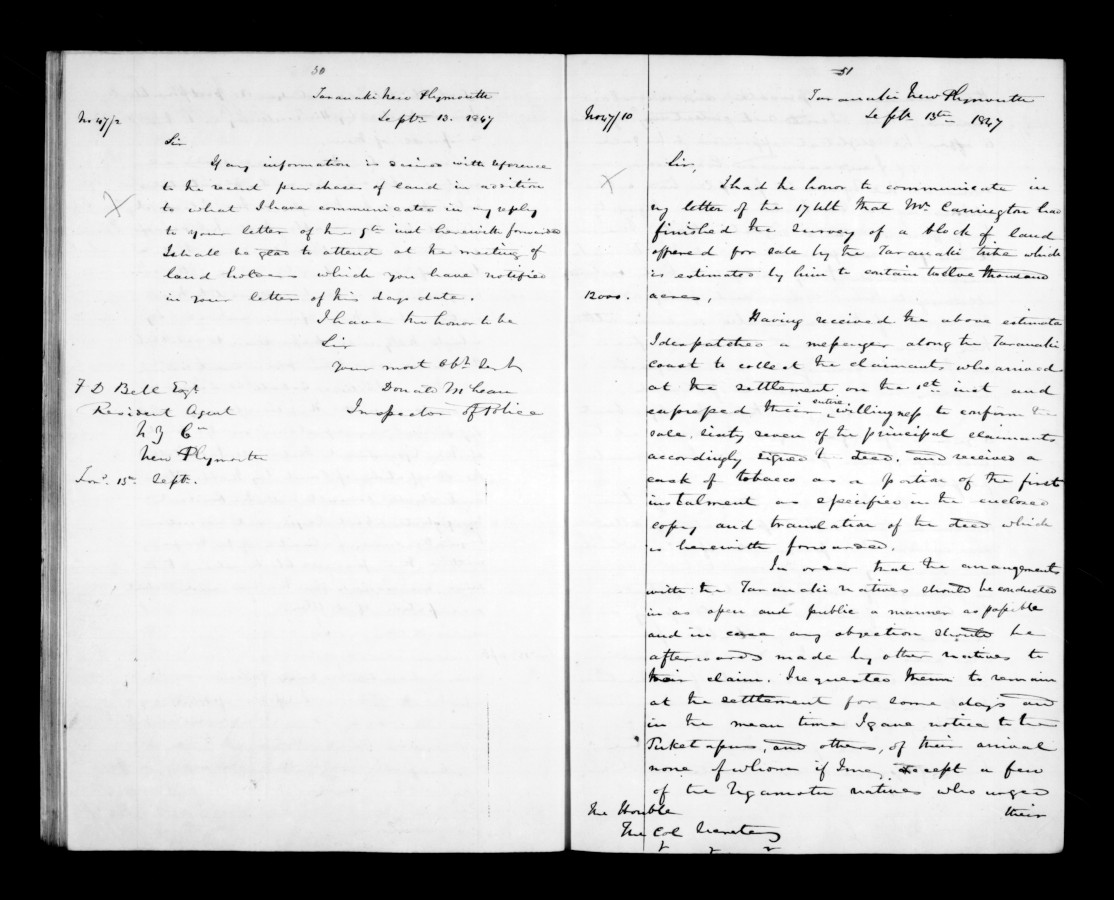 50
Taranaki New Plymouth
No 47/2
Septr 13. 1847
Sir
If any information is desired with reference
to the recent purchases of land in addition
to what I have communicated in my reply
to your letter of the 9th inst herewith forwarded
I shall be glad to attend at the meeting of
land holders which you have notified
in your letter of this days date.
I have the honor to be
Sir
Your most Obt Servt
Donald McLean
Inspector of Police
F D Bell Esqr
Resident Agent
N Z Co
New Plymouth
15th Septr.
51
Taranaki New Plymouth
No 47/10
Septr 13th 1847
Sir,
I had the honor to communicate in
my letter of the 17 Ult that Mr. Carrington had
finished the survey of a block of land
offered for sale by the Taranaki tribe which
is estimated by him to contain twelve thousand
12000.
acres,
Having received the above estimate
I despatched a messenger along the Taranaki
coast to collect the claimants who arrived
at the settlement on the 1st inst and
expressed their entire willingness to confirm the
sale, sixty seven of the principal claimants
accordingly signed the deed, and received a
cask of tobacco as a portion of the first
instalment as specified in the enclosed
copy and translation of the deed which
is herewith forwarded.
In order that the arrangements
with the Taranaki natives should be conducted
in as open and public a manner as possible
and in case any objection should be
afterwards made by other natives to
their claim. I requested them to remain
at the settlement for some days and
in the mean time I gave notice to the
Puketapus, and others, of their arrival
none of whom if I may except a few
of the Ngamotu natives who urged
their
The Honble
The Col Secretary